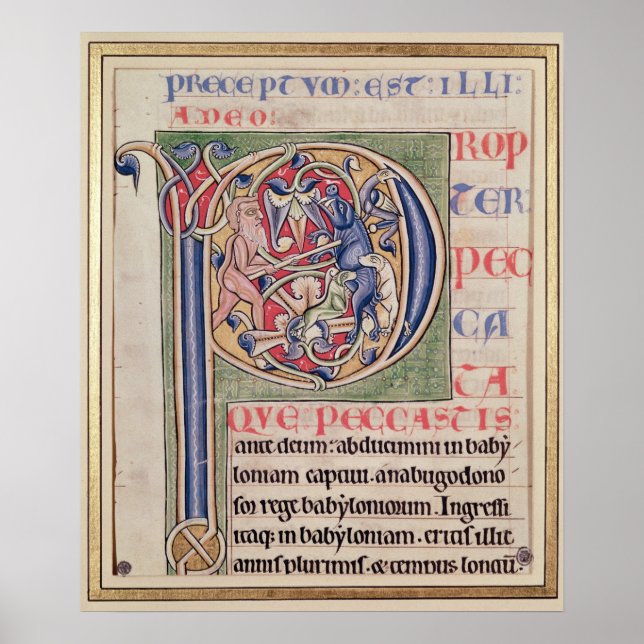 PRECEPTVM : EST : ILLI :
A DEO :
P ROP
TER
PEC
CA
TA
QVE PECCASTIS
ante deum : abducimini in baby
loniam captiui . a nabugodono
sor rege babyloniorum . Ingressi
itaq; in babyloniam . eritis illic
annis plurimis . & tempus longū .